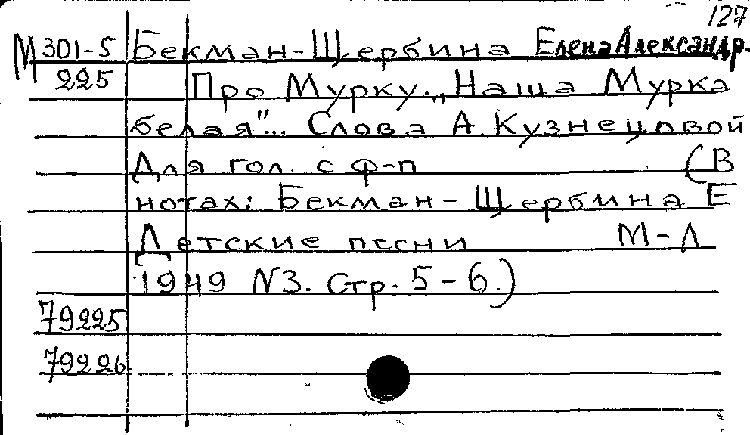 127
М 301-5 Бекман-Щербина Елена Александр.
225 Про Мурку. „Наша Мурка
белая"... Слова А Кузнецовой
Для гол. с ф-п (В
нотах: Бекман-Щербина Е
Детские песни М-Л
1949 N3. Стр. 5-6.)
79225
79226